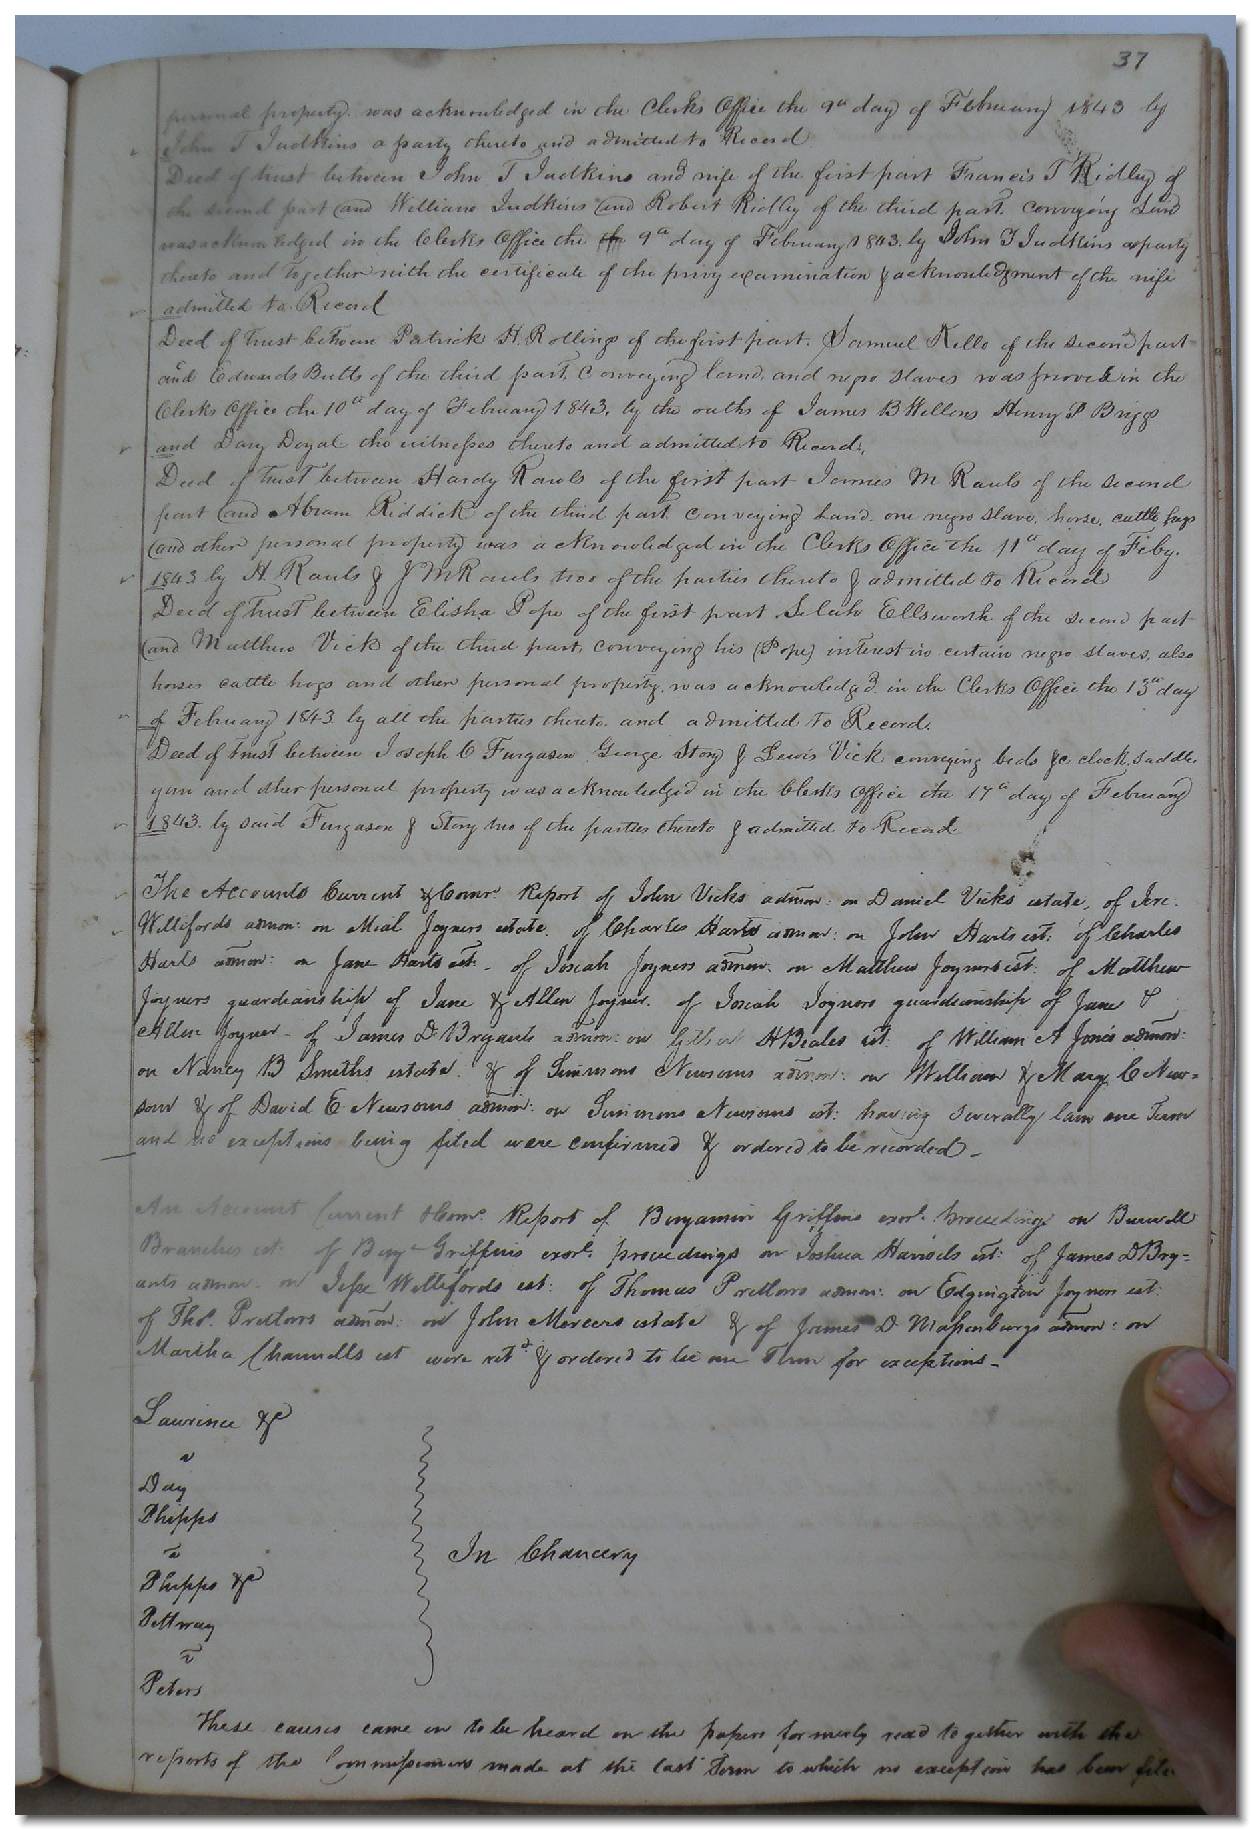 37
personal property was acknowledged in the Clerks Office the 9th day of February 1843 by
John T Judkins a party thereto and admitted to Record
Deed of trust between John T Judkins and wife of the first part Francis T Ridley of
the second part and William Judkins and Robert Ridley of the third part conveying Land
was acknowledged in the Clerks Office the 9th day of February 1843. by John T Judkins a party
thereto and together with the certificate of the privy examination & acknowledgment of the wife
admitted to Record
Deed of trust between Patrick H. Rollings of the first part. Samuel Kello of the second part
and Edwards Butts of the third part, conveying land, and negro slaves was proved in the
Clerks Office the 10th day of February 1843. by the oaths of James B Wellons Henry P Briggs
and Davy Doyal the witnesses thereto and admitted to Record.
Deed of trust between Hardy Rawls of the first part James M Rawls of the second
part and Abram Riddick of the third part. conveying land. one negro slave. horse. cattle hogs
and other personal property was acknowledged in the Clerks Office the 11th day of Feby.
1843 by H. Rawls & J M Rawls two of the parties thereto & admitted to Record
Deed of trust between Elisha Pope of the first part Selah Ellsworth of the second part
and Matthew Vick of the third part, conveying his (Pope) interest in certain negro slaves, also
horses cattle hogs and other personal property. was acknowledg'd in the Clerks Office the 13th day
of February 1843 by all the parties thereto. and admitted to Record.
Deed of trust between Joseph C Furgason George Story & Lewis Vick conveying beds &c clock, saddle,
gun and other personal property was acknowledged in the Clerks Office the 17th day of February
1843. by said Furgason & Story two of the parties thereto & admitted to Record
The Accounts Current & Comr. Report of John Vicks admon: on Daniel Vicks estate, of Jere.
Willifords admon: on Mial Joyners estate. of Charles Harts admon: on John Harts est: of Charles
Harts admon: on Jane Harts est. of Josiah Joyners admon. on Matthew Joyners est: of Matthew
Joyners guardianship of Jane & Allen Joyner. of Josiah Joyners guardianship of Jane &
Allen Joyner - of James D Bryants admon: on H Beales est: of William A Jones admon:
on Nancy B Smiths estate. & of Simmons Newsoms admon: on William & Mary C New=
som & of David E Newsoms admon: on Simmons Newsoms est: having severally lain one Term
and no exceptions being filed were confirmed & ordered to be recorded -
An Account Current & Comr. Report of Benjamin Griffins exorl. proceedings on Burwell
Branches est: of Benj Griffins exorl. proceedings on Joshua Harrisels est: of James D Bry-
ants admon: on Jesse Willifords est: of Thomas Pretlows admon: on Edgington Joyners est:
of Thos. Pretlows admon: on John Mercers estate & of James D Massenburgs admon: on
Martha Channells est were retd. & ordered to lie one Term for exceptions -
Lawrence &c
v
Day
Phipps
v
Phipps &c
Pettway
v
Peters
In Chancery
These causes came on to be heard on the papers formerly read together with the
reports of the Commissioners made at the last Term to which no exception has been filed